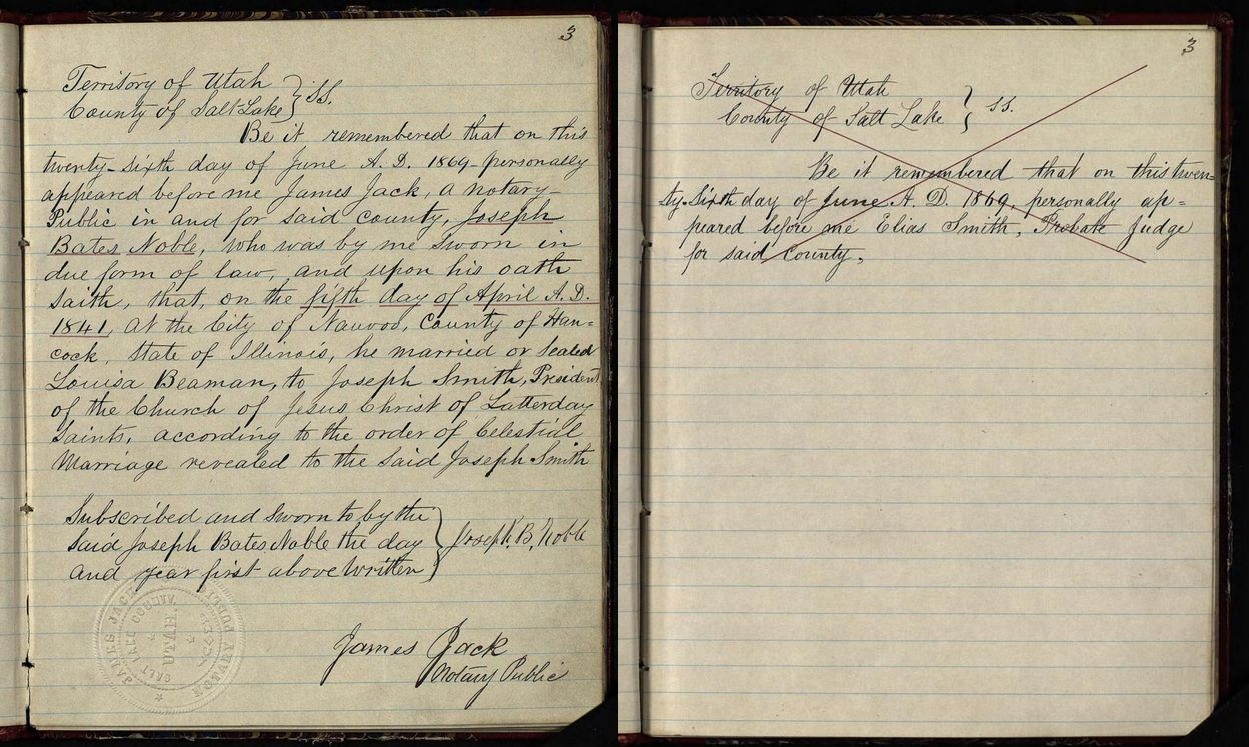 3
Territory of Utah
County of Salt Lake } SS.
Be it remembered that on this
twenty-sixth day of June A. D. 1869 personally
appeared before me James Jack, a notary
Public in and for said county, Joseph
Bates Noble, who was by me sworn in
due form of law, and upon his oath
saith, that, on the fifth day of April A.D.
1841, at the City of Nauvoo, County of Han=
cock, State of Illinois, he married or sealed
Louisa Beaman, to Joseph Smith, President
of the Church of Jesus Christ of Latterday
Saints, according to the order of Celestial
Marriage revealed to the Said Joseph Smith
Subscribed and Sworn to by the
Said Joseph Bates Noble the day
and year first above written } Joseph. B. Noble
James Jack
Notary Public
JAMES JACK
NOTARY PUBLIC
SALT LAKE COUNTY.
UTAH
3
Territory of Utah
County of Salt Lake } SS.
Be it remembered that on this twen=
ty-sixth day of June A. D. 1869, personally ap=
peared before me Elias Smith, Probate Judge
for said County,